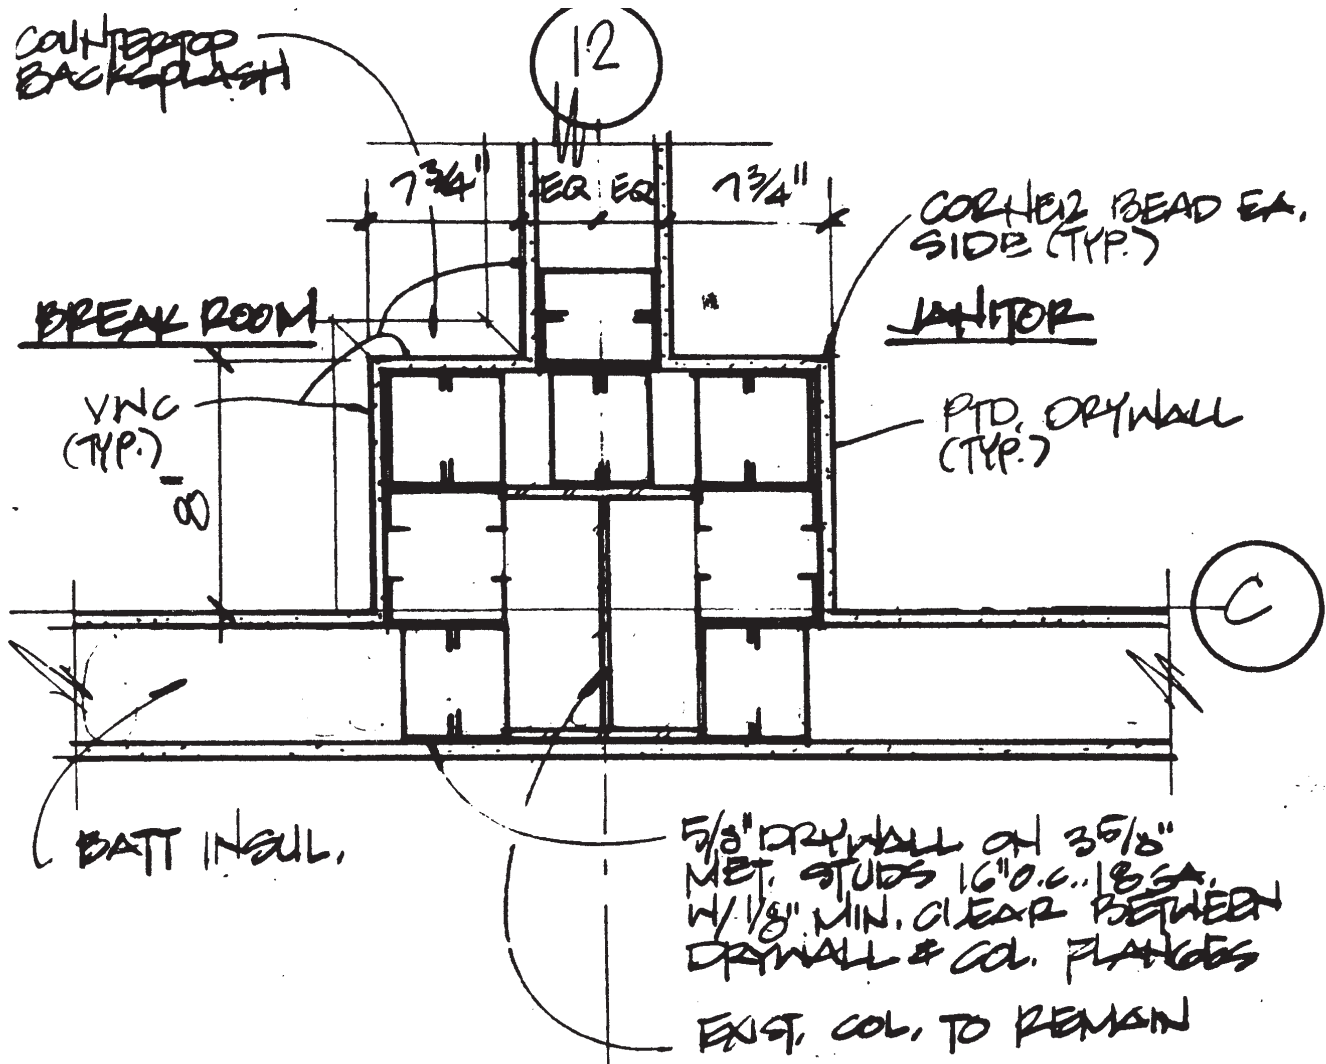 COUNTERTOP
BACKSPLASH
12
7 3/4" EQ EQ 7 3/4"
CORNER BEAD EA.
SIDE (TYP.)
BREAK ROOM
JANITOR
VWC
(TYP.)
PTD. DRYWALL
(TYP.)
8"
C
BATT INSUL.
5/8" DRYWALL ON 3 5/8"
MET. STUDS 16" O.C.. 18 GA.
W/ 1/8" MIN. CLEAR BETWEEN
DRYWALL & COL. FLANGES
EXIST. COL. TO REMAIN